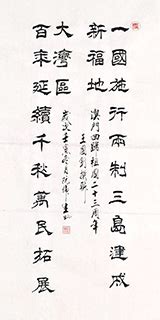 一國施行兩制三島建成
新福地
百年延續千秋萬民拓展
大灣區
澳門回歸祖國二十三周年
歲次壬寅冬月